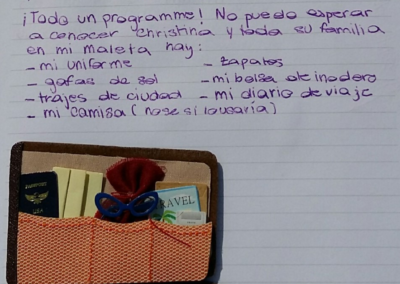 ¡Todo un programme! No puedo esperar
a conocer Christina y toda su familia
en mi maleta hay:
- mi uniforme - zapatos
- gafas de sol - mi bolsa de inodero
- trajes de ciudad - mi diario de viaje
- mi camisa (no se si lo usaria)
TRAVEL